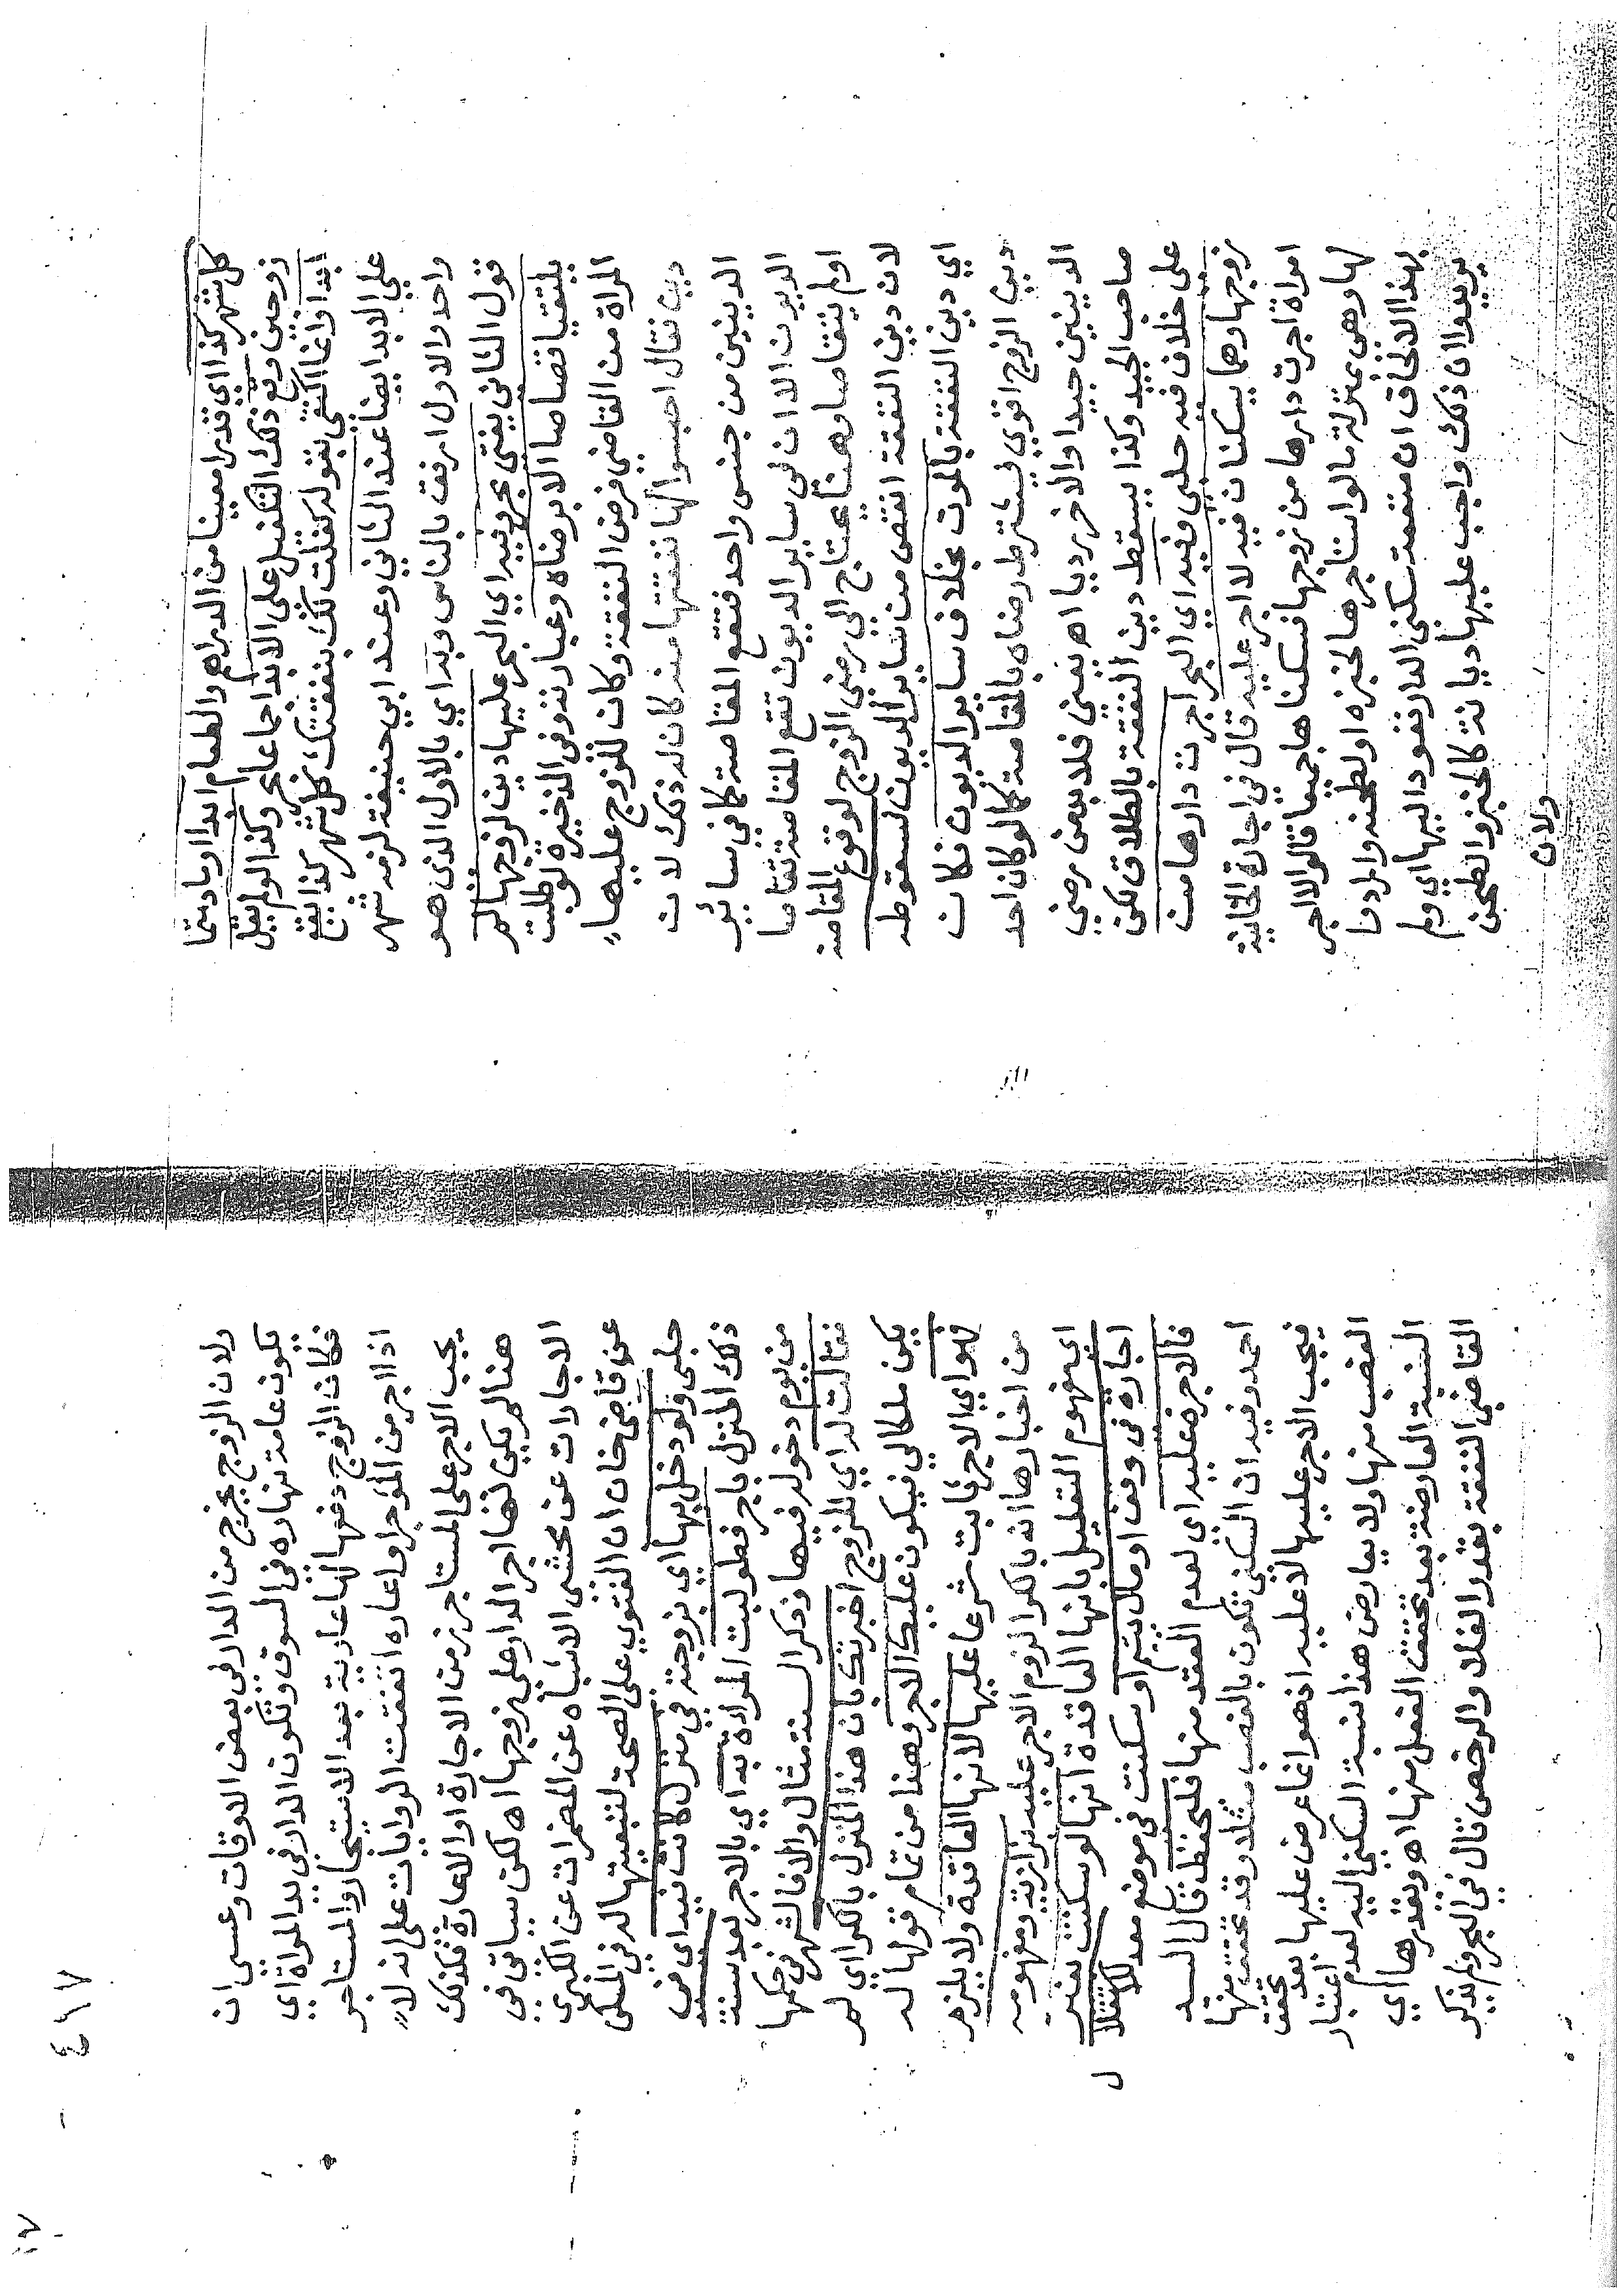 كل شهر كذا اي قدرا معينا من الدراهم والطعام ابدا او ما دمتما
زوجين وقع ذلك التكفل على الابد اجماعا بحر وكذا لو لم يقل
ابدا وانما اكتفى بقوله تكفلت لك بنفقتك كل شهر كذا يقع
على الابد ايضا عند الثاني وعند ابي حنيفة لزمه شهر
واحد والاول ارفق بالناس وبه اي بالاول الذي هو
قول الثاني يفتى بحر وفيه اي البحر عليها دين لزوجها لم
يلتقيا قصاصا الا برضاه وعبارته وفي الذخيرة لو طلبت
المراة من القاضي فرض النفقة وكان للزوج عليها
دين فقال احسبوا لها نفقتها منه كان له ذلك لان
الدينين من جنس واحد فتقع المقاصة كما في سائر
الديون الا ان في ساير الديون تقع المقاصة تقاصا
اولم يتقاصا وهنا يحتاج الى رضى الزوج لوقوع المقاصه
لان دين النفقة انقص من ساير الديون لسقوطه
اي دين النفقة بالموت بخلاف ساير الديون فكان
دين الزوج اقوى فيشترط رضاه بالمقاصة كما لو كان احد
الدينين جيدا والاخر رديا اه يعني فلا بد من رضى
صاحب الجيد وكذا يسقط دين النفقة بالطلاق لكن
على خلاف فيه حلبي وفيه اي البحر اجرت دارها من
زوجها وهما يسكنان فيه لا اجر عليه قال في اجارة الخانية
امراة اجرت دارها من زوجها فسكناها جميعا قالوا لا اجر
لها وهي بمنزلة ما لو استاجرها لخبزه او لطحنه وارادوا
بهذا الالحاق ان منفعت سكنى الدار تعود اليها اي ولم
يريدوا ان ذلك واجب عليها ديانة كالخبز والطحن
ولان
٤١٧
ولان الزوج يخرج من الدار في بعض الاوقات وعسى ان
يكون عامة نهاره في السوق وتكون الدار في يد المراة اي
فكان الزوج دفعها لها عارية بعد الاستيجار والمستاجر
اذا اجر من المؤجر او اعاره اتفقت الروايات على انه لا
يجب الاجر على المستاجر زمن الاجارة او الاعارة فكذلك
هنا لم يكن لها اجر الدار على زوجها اه لكن سياتي في
الاجارات عن محشى الاشباه عن المضمرات عن الكبرى
عن قاضي خان ان الفتوى على الصحة لتبعيتها له في السكنى
حلبي ولو دخل بها اي بزوجته في منزل كانت فيه اي في
ذلك المنزل باجر فطولبت المراة به اي بالاجر بعد سنة
من يوم دخوله فيها وذكر السنة مثال والا فالشهر في حكمها
فقالت له اي للزوج اخبرتك بان هذا المنزل بالكرا اي لم
يكن ملكا لي فيكون عليك الاجر وهذا من تمام قولها له
فهو اي الاجر ثابت شرعا عليها لانها العاقدة ولا يلزم
من اخبارها انه بالكرا لزوم الاجر عليه بزازيه ومفهومه
اي مفهوم التعليل بانها العاقدة انها لو سكنت بغير
اجارة في وقف او مال يتيم او سكنت في موضع معد للاستغلال
فالاجر عليه اي لعدم العقد منها فليحفظ قال السيد
احمد وفيه ان السكنى تكون بالغصب مثله وقد تحقق منها
فيجب الاجر عليها لا عليه اذ هو انما عرض عليها بعد تحقق
الغصب منها ولا يعارض هذا نسبة السكنى اليه لعدم اعتبار
النسبة العارضة بعد تحقق الفعل منها اه ويقدرها اي
القاضي النفقة بقدر الغلا والرخص قال في البحر ولم يذكر